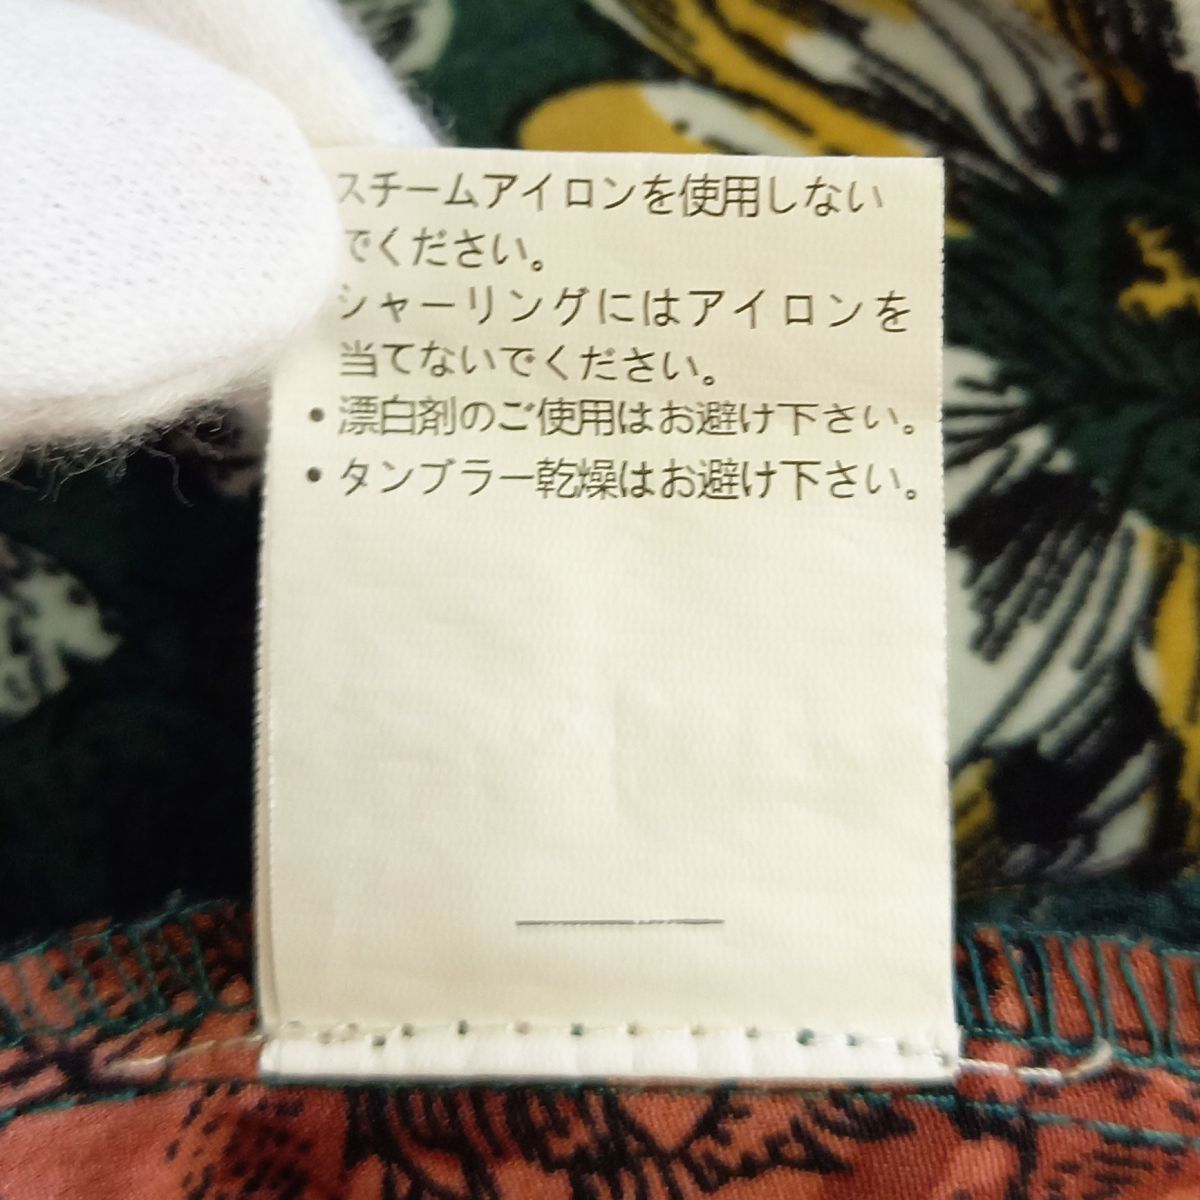 スチームアイロンを使用しない
でください。
シャーリングにはアイロンを
当てないでください。
・漂白剤のご使用はお避け下さい。
・タンブラー乾燥はお避け下さい。